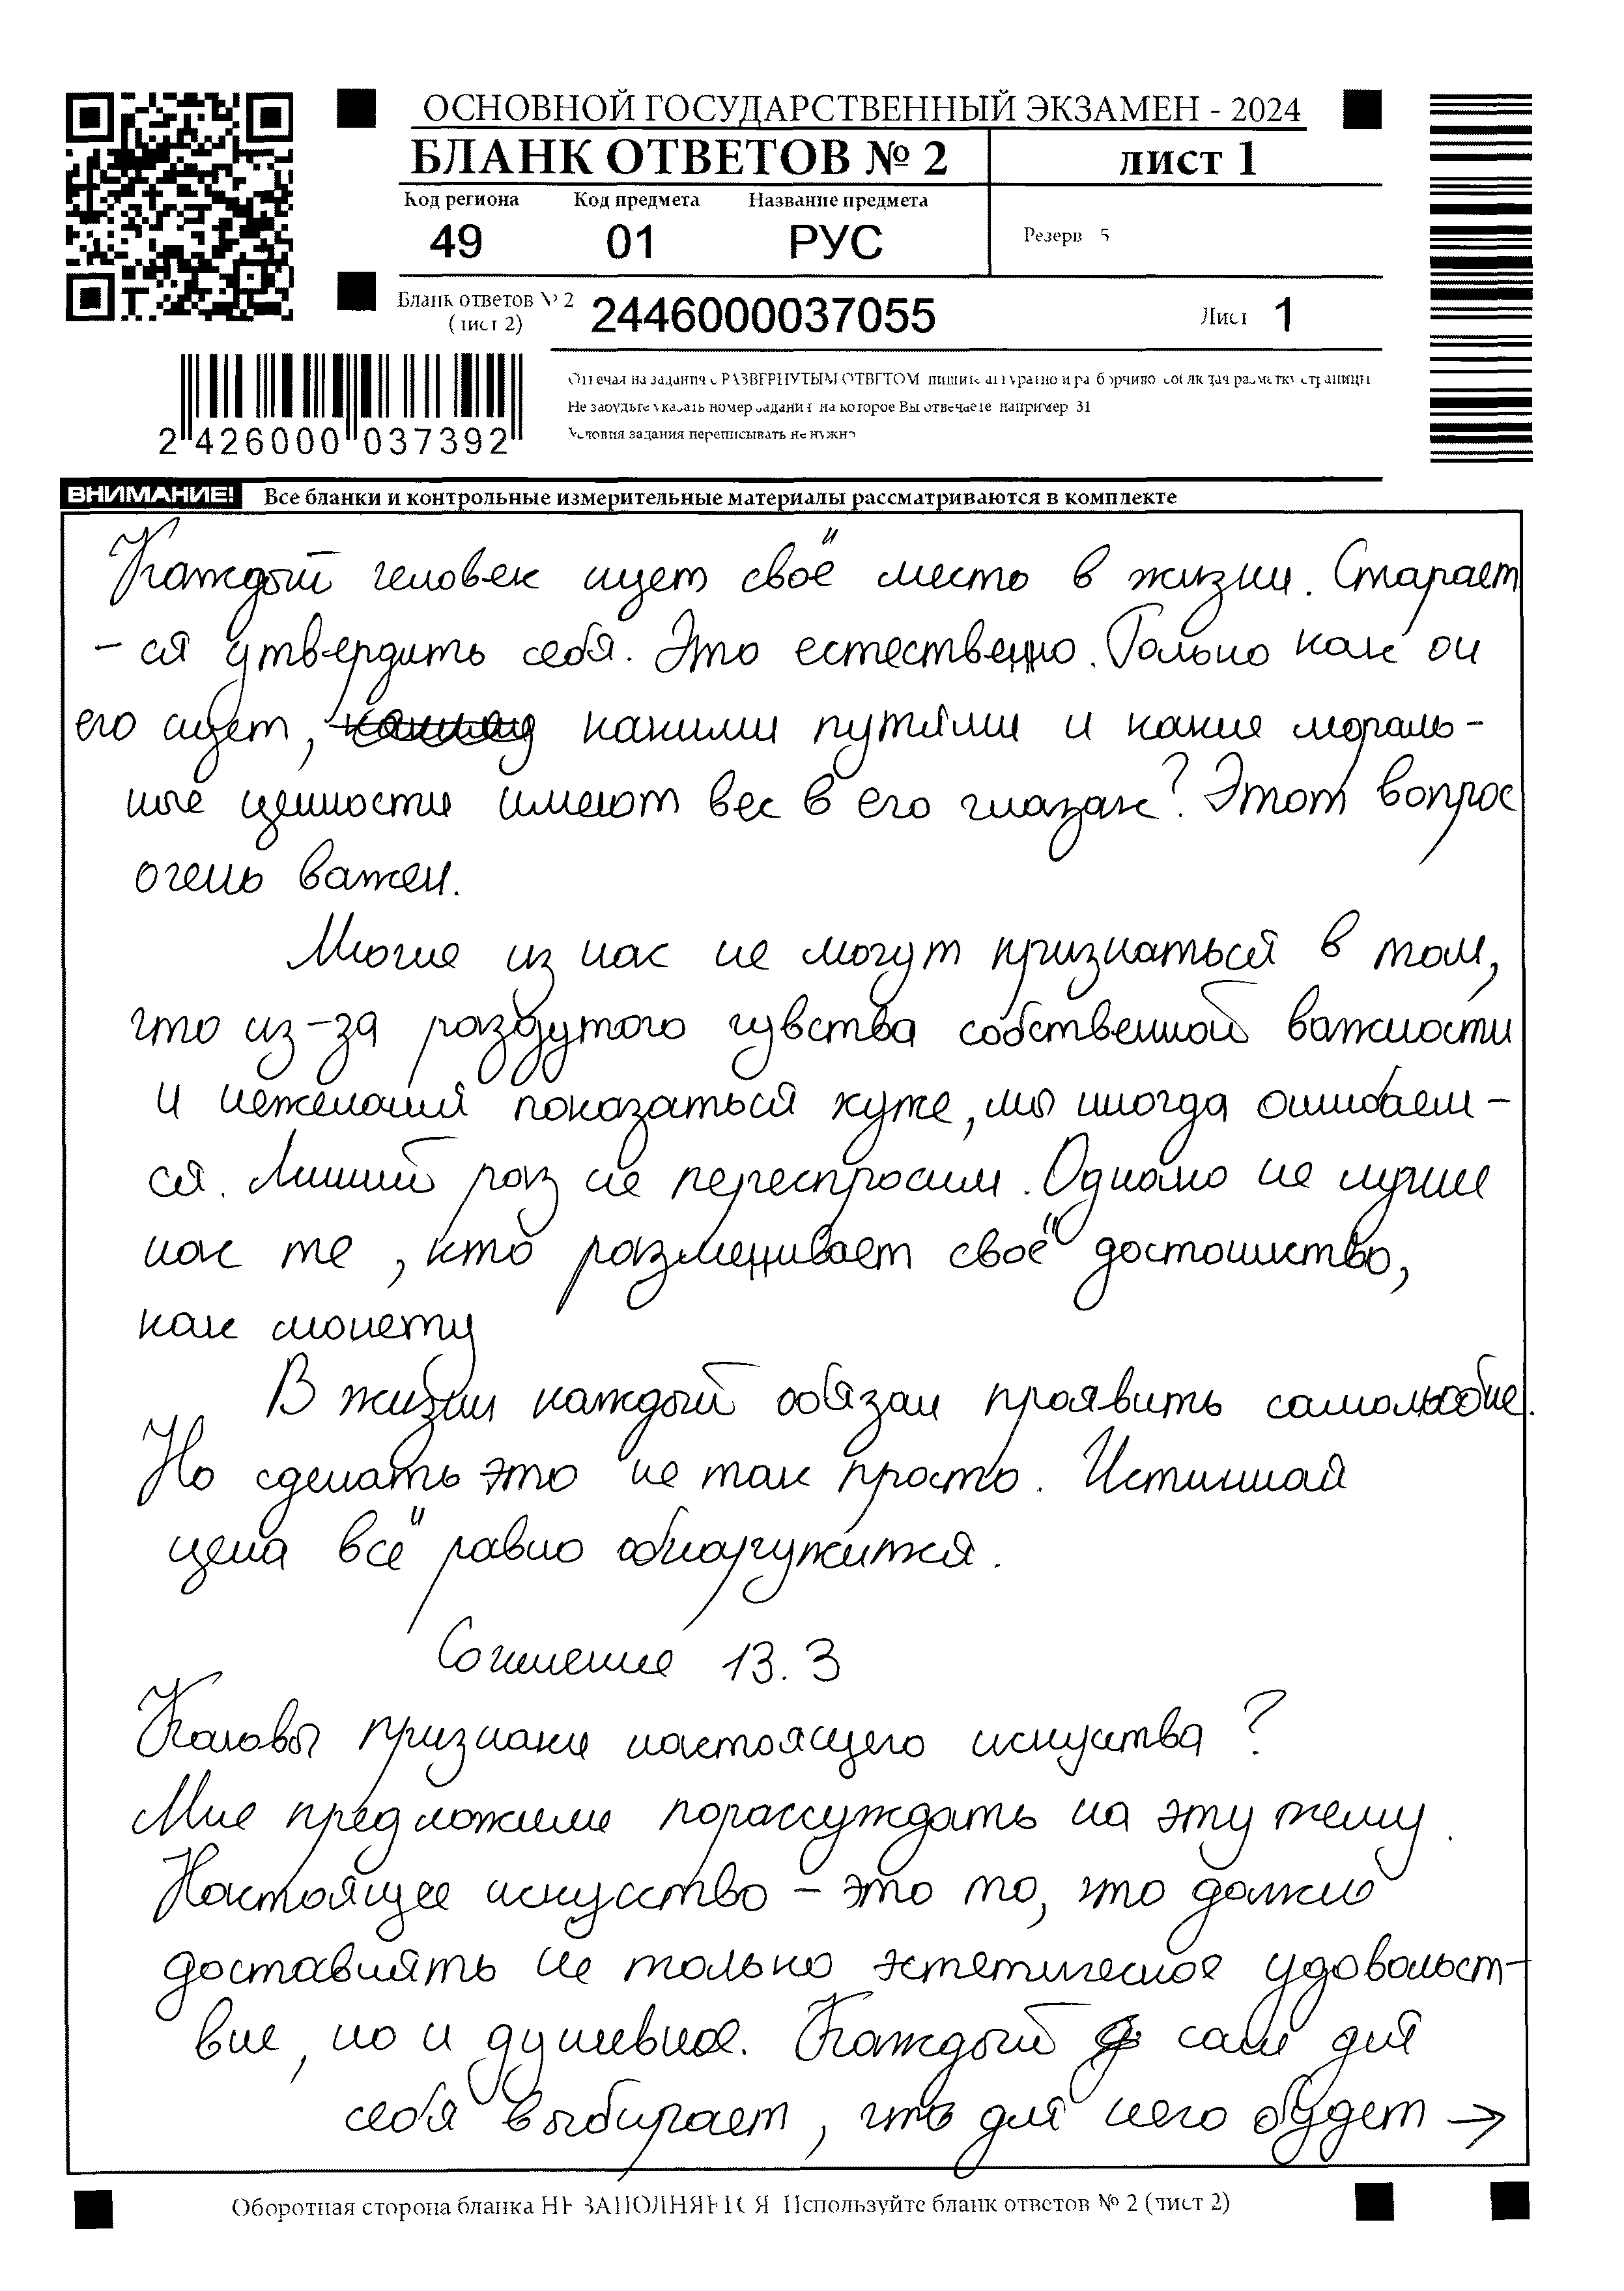 ОСНОВНОЙ ГОСУДАРСТВЕННЫЙ ЭКЗАМЕН - 2024
БЛАНК ОТВЕТОВ № 2
лист 1
Код региона Код предмета Название предмета
49 01 РУС
Резерв 5
Бланк ответов № 2
(лист 2)
2446000037055
Лист 1
2 426000 037392
Отвечая на задания с РАЗВЕРНУТЫМ ОТВЕТОМ пишите аккуратно и разборчиво соблюдая разметку страницы
Не забудьте указать номер задания на которое Вы отвечаете например 31
Условия задания переписывать не нужно
ВНИМАНИЕ! Все бланки и контрольные измерительные материалы рассматриваются в комплекте
Каждый человек ищет своё место в жизни. Старает
- ся утвердить себя. Это естественно. Только как он
его ищет, какими путями и какие мораль-
ные ценности имеют вес в его глазах? Этот вопрос
очень важен.
Многие из нас не могут признаться в том,
что из-за раздутого чувства собственной важности
и нежелания показаться хуже, мы иногда ошибаем-
ся. Лишний раз не переспросим. Однако не лучше
нас те, кто разменивает своё достоинство,
как монету
В жизни каждый обязан проявить самолюбие.
Но сделать это не так просто. Истинная
цена всё равно обнаружится.
Сочинение 13.3
Каковы признаки настоящего искуства?
Мне предложили порассуждать на эту тему.
Настоящее искусство - это то, что должно
доставлять не только эстетическое удовольст-
вие, но и душевное. Каждый сам для
себя выбирает, что для него будет →
Оборотная сторона бланка НЕ ЗАПОЛНЯЕТСЯ Используйте бланк ответов № 2 (лист 2)